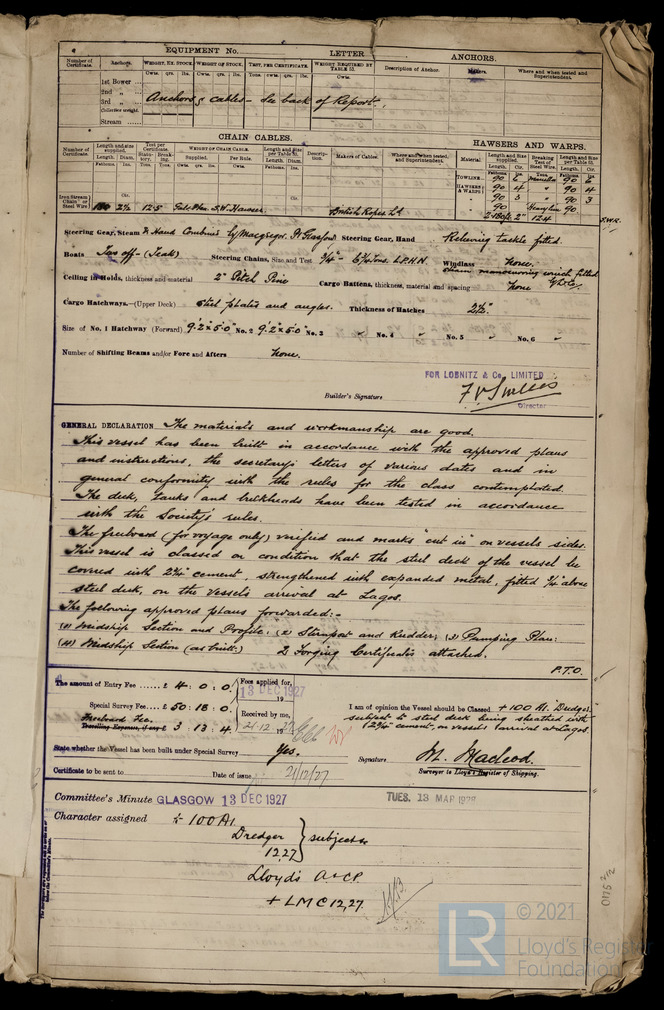 EQUIPMENT No. LETTER ANCHORS.
Number of Certificate. Anchors. WEIGHT, EX. STOCK. WEIGHT OF STOCK. TEST, PER CERTIFICATE. WEIGHT REQUIRED BY TABLE 53. Description of Anchor. Makers. Where and when tested and Superintendent.
Cwts. qrs. lbs. Cwts. qrs. lbs. Tons. Cwts. qrs. lbs. Cwts. qrs. lbs.
1st Bower
2nd "
3rd " Anchors & cables - See back of Report.
Collective weight.
Stream
CHAIN CABLES. HAWSERS AND WARPS.
Number of Certificate. Length and size supplied. Test per Certificate. WEIGHT OF CHAIN CABLE. Length and size per Table 53. Description. Makers of Cables. Where and when tested, and Superintendent. Material Length and size supplied. Breaking Test of Length and size per Table 53.
Length. Diam. Supplied. Per Rule. Length. Diam. Length. Cir. Tons. Length. Cir.
TOWLINE 90 6 Manilla 90 6
HAWSERS & WARPS 90 4 " 90 4
90 3 90 3
Iron Stream Chain or Steel Wire 2½ 12.5 S.W. Hawser British Ropes Ld 90 90
2" 12.4 S.W.R.
Steering Gear, Steam & Hand Combined by Macgregor, Glasgow Steering Gear, Hand Relieving tackle fitted.
Boats Two off - (Teak) Steering Chains, Size and Test ¾" - 6¾ Tons. L.P.H.N. Windlass None.
Steam manoeuvring winch fitted
Ceiling in Holds, thickness and material 2" Pitch Pine Cargo Battens, thickness, material and spacing None
Cargo Hatchways.-(Upper Deck) Steel plates and angles. Thickness of Hatches 2½".
Size of No. 1 Hatchway (Forward) 9'.2" x 5'.0" No. 2 9'.2" x 5'.0" No. 3 " No. 4 " No. 5 " No. 6 "
Number of Shifting Beams and/or Fore and Afters None.
FOR LOBNITZ & Co. LIMITED
Builder's Signature
Director
GENERAL DECLARATION The materials and workmanship are good.
This vessel has been built in accordance with the approved plans
and instructions, the secretary's letters of various dates and in
general conformity with the rules for the class contemplated.
The deck, tanks and bulkheads have been tested in accordance
with the Society's rules.
The freeboard (for voyage only) verified and marks "cut in" on vessels sides.
This vessel is classed on condition that the steel deck of the vessel be
covered with 2¼" cement, strengthened with expanded metal, fitted ¾" above
steel deck, on the vessels arrival at Lagos.
The following approved plans forwarded:-
(1) Midship Section and Profile; (2) Sternpost and Rudder; (3) Pumping Plan:
(4) Midship Section (as built). 2 Forging Certificates attached.
P.T.O.
The amount of Entry Fee £ 4 : 0 : 0 Fees applied for, 13 DEC 1927
Special Survey Fee £ 50 : 18 : 0
Freeboard Fee.
Travelling Expenses, if any £ 3 : 13 : 4 Received by me, 21.12.1927
I am of opinion the Vessel should be Classed +100 A1 "Dredger"
subject to steel deck being sheathed with
2¼" cement, on vessels arrival at Lagos.
State whether the Vessel has been built under Special Survey Yes.
Signature M. Macleod.
Surveyor to Lloyd's Register of Shipping.
Certificate to be sent to Date of issue 21/12/27
Committee's Minute GLASGOW 13 DEC 1927 TUES. 13 MAR 1928
Character assigned + 100 A1
Dredger } subject to
12,27
Lloyd's A & CP.
+ LMC 12,27.
LR
© 2021
Lloyd's Register
Foundation